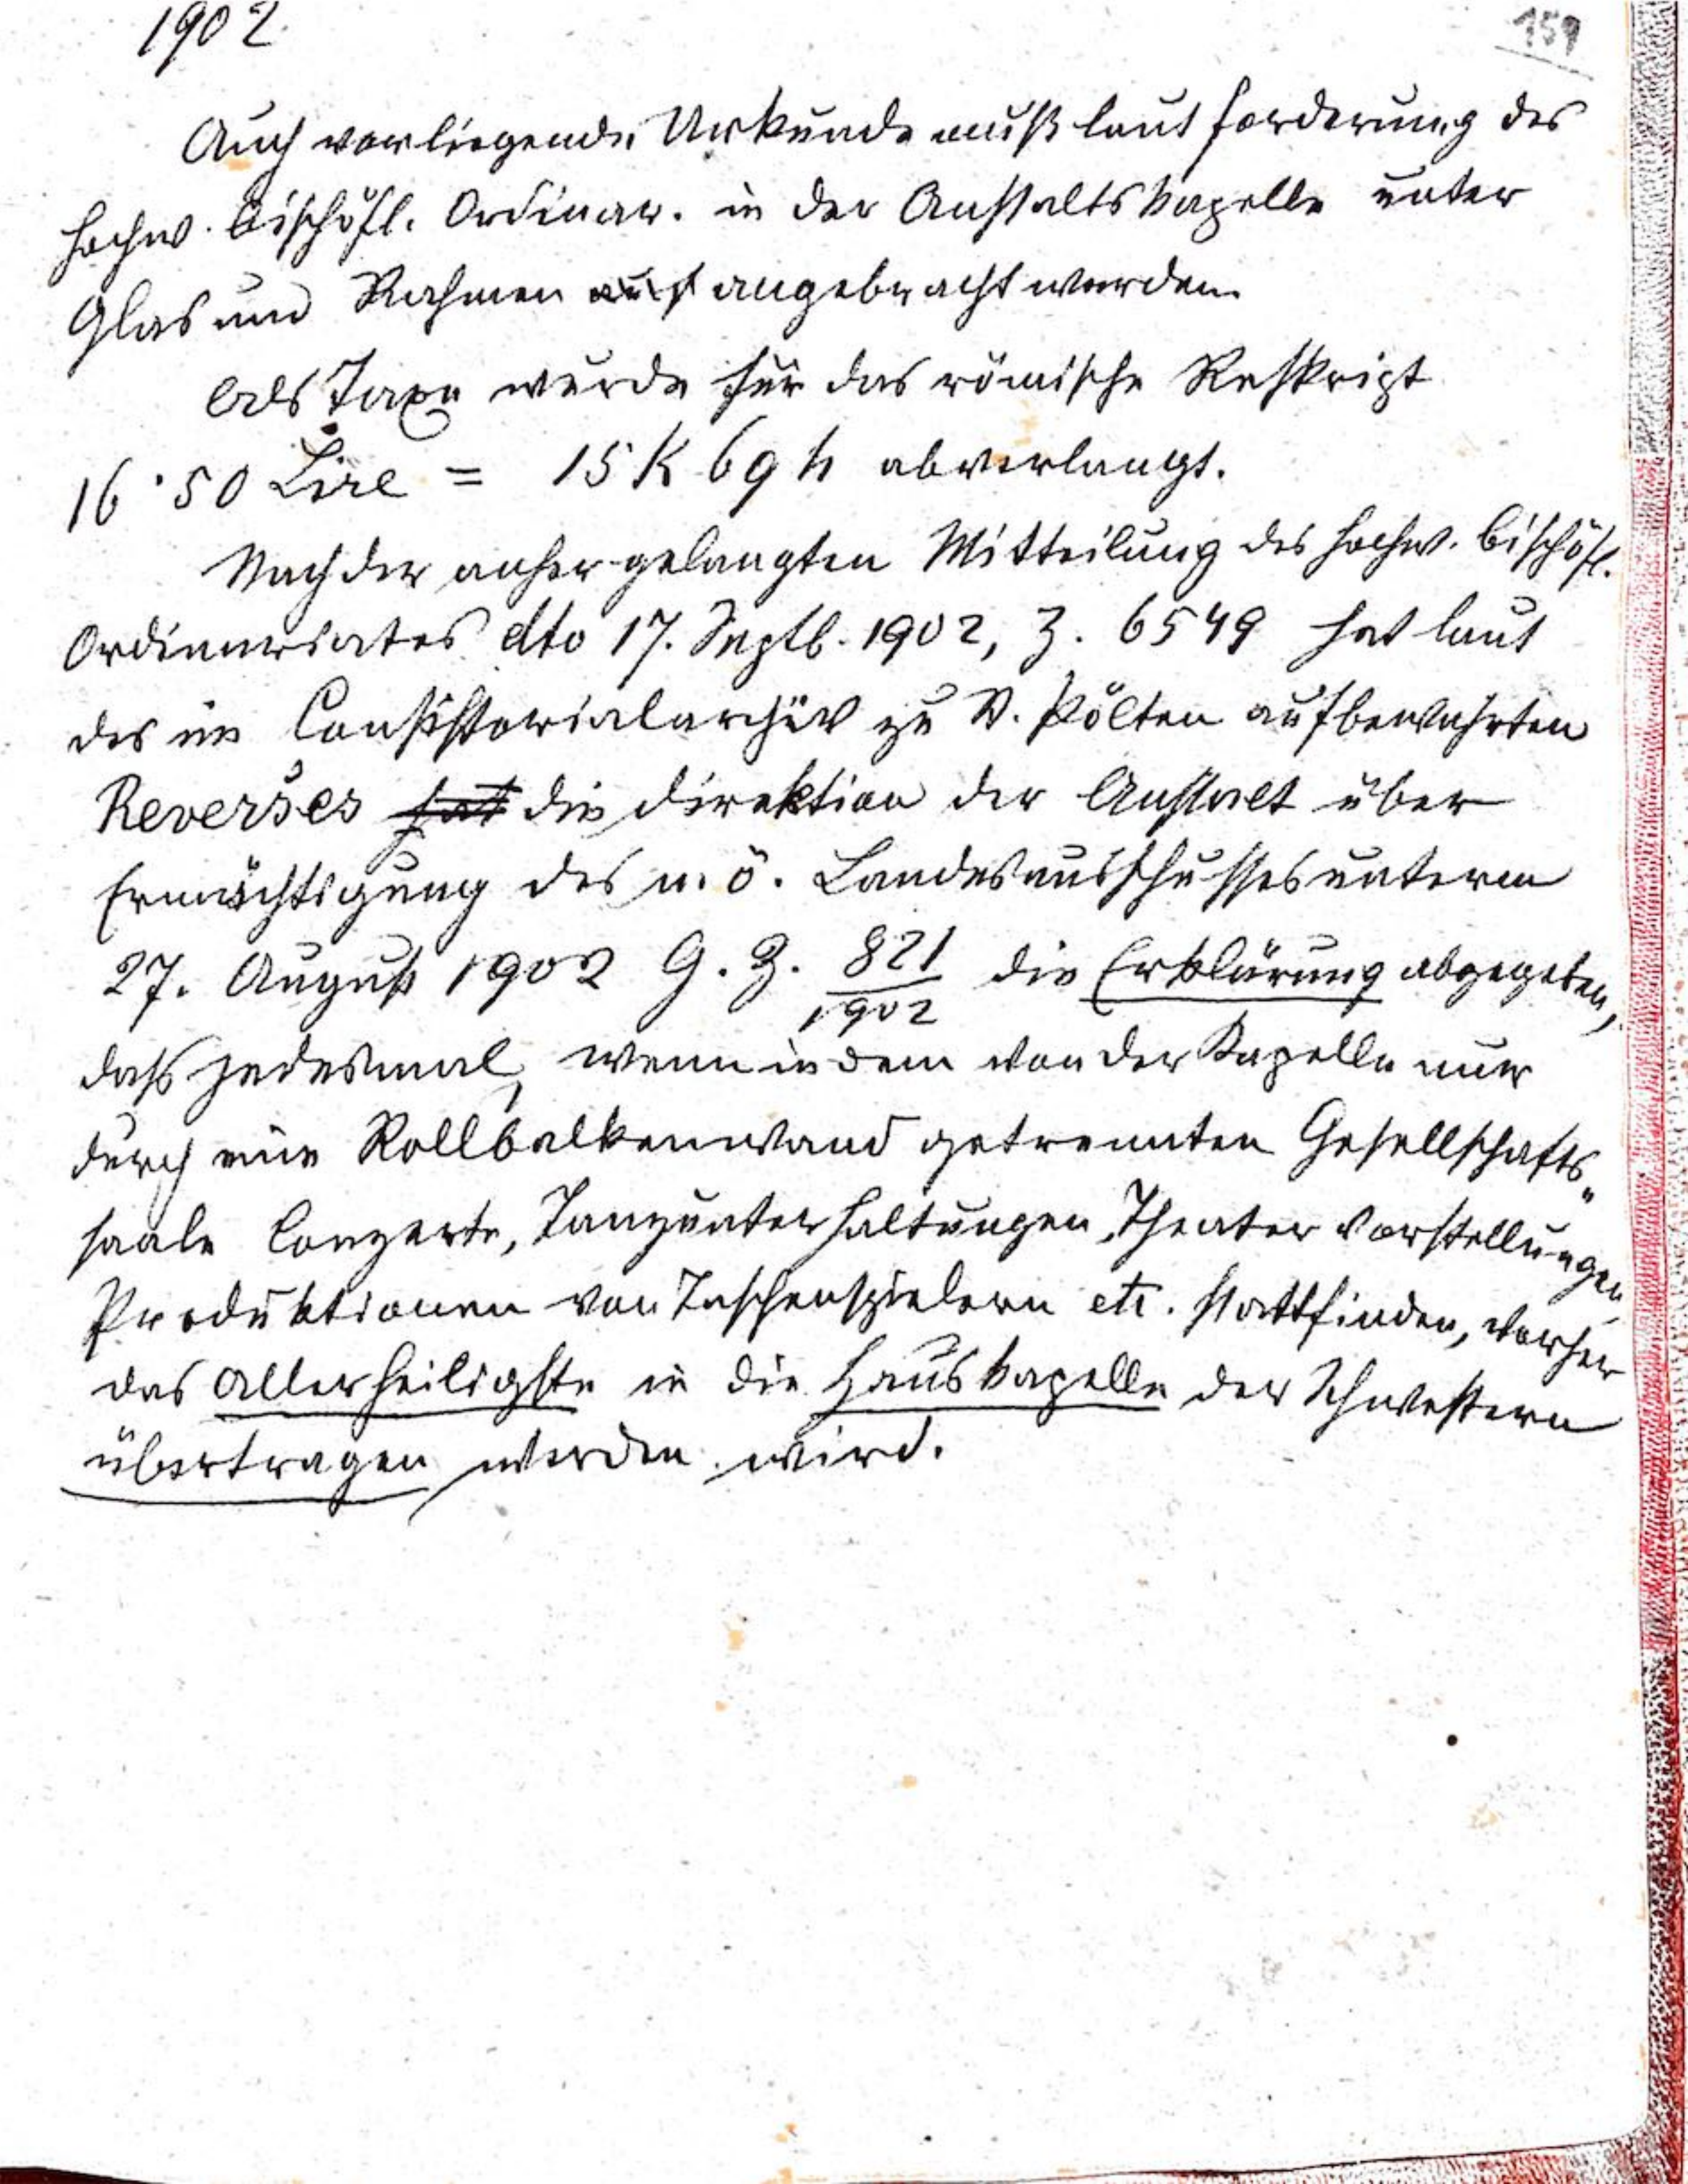 1902.
159
Auch vorliegende Urkunde muß laut Forderung des
hochw. bischöfl. Ordinar. in der Anstaltskapelle unter
Glas und Rahmen angebracht werden.
Als Taxe wurde für das römische Reskript
16·50 Lire = 15 K 69 h abverlangt.
Nach der anher gelangten Mitteilung des hochw. bischöfl.
Ordinariates dto 17. Septb. 1902, Z. 6549 hat laut
des im Consistorialarchiv zu St. Pölten aufbewahrten
Reverses hat die Direktion der Anstalt über
Ermächtigung des n. ö. Landesausschusses unterm
27. August 1902 G. Z. 821/1902 die Erklärung abgegeben,
dass jedesmal, wenn in dem von der Kapelle nur
durch eine Rollbalkenwand getrennten Gesellschafts„
saale Conzerte, Tanzunterhaltungen, Theater Vorstellungen
Produktionen von Taschenspielern etc. stattfinden, vorher
das Allerheiligste in die Hauskapelle der Schwestern
übertragen werden wird.